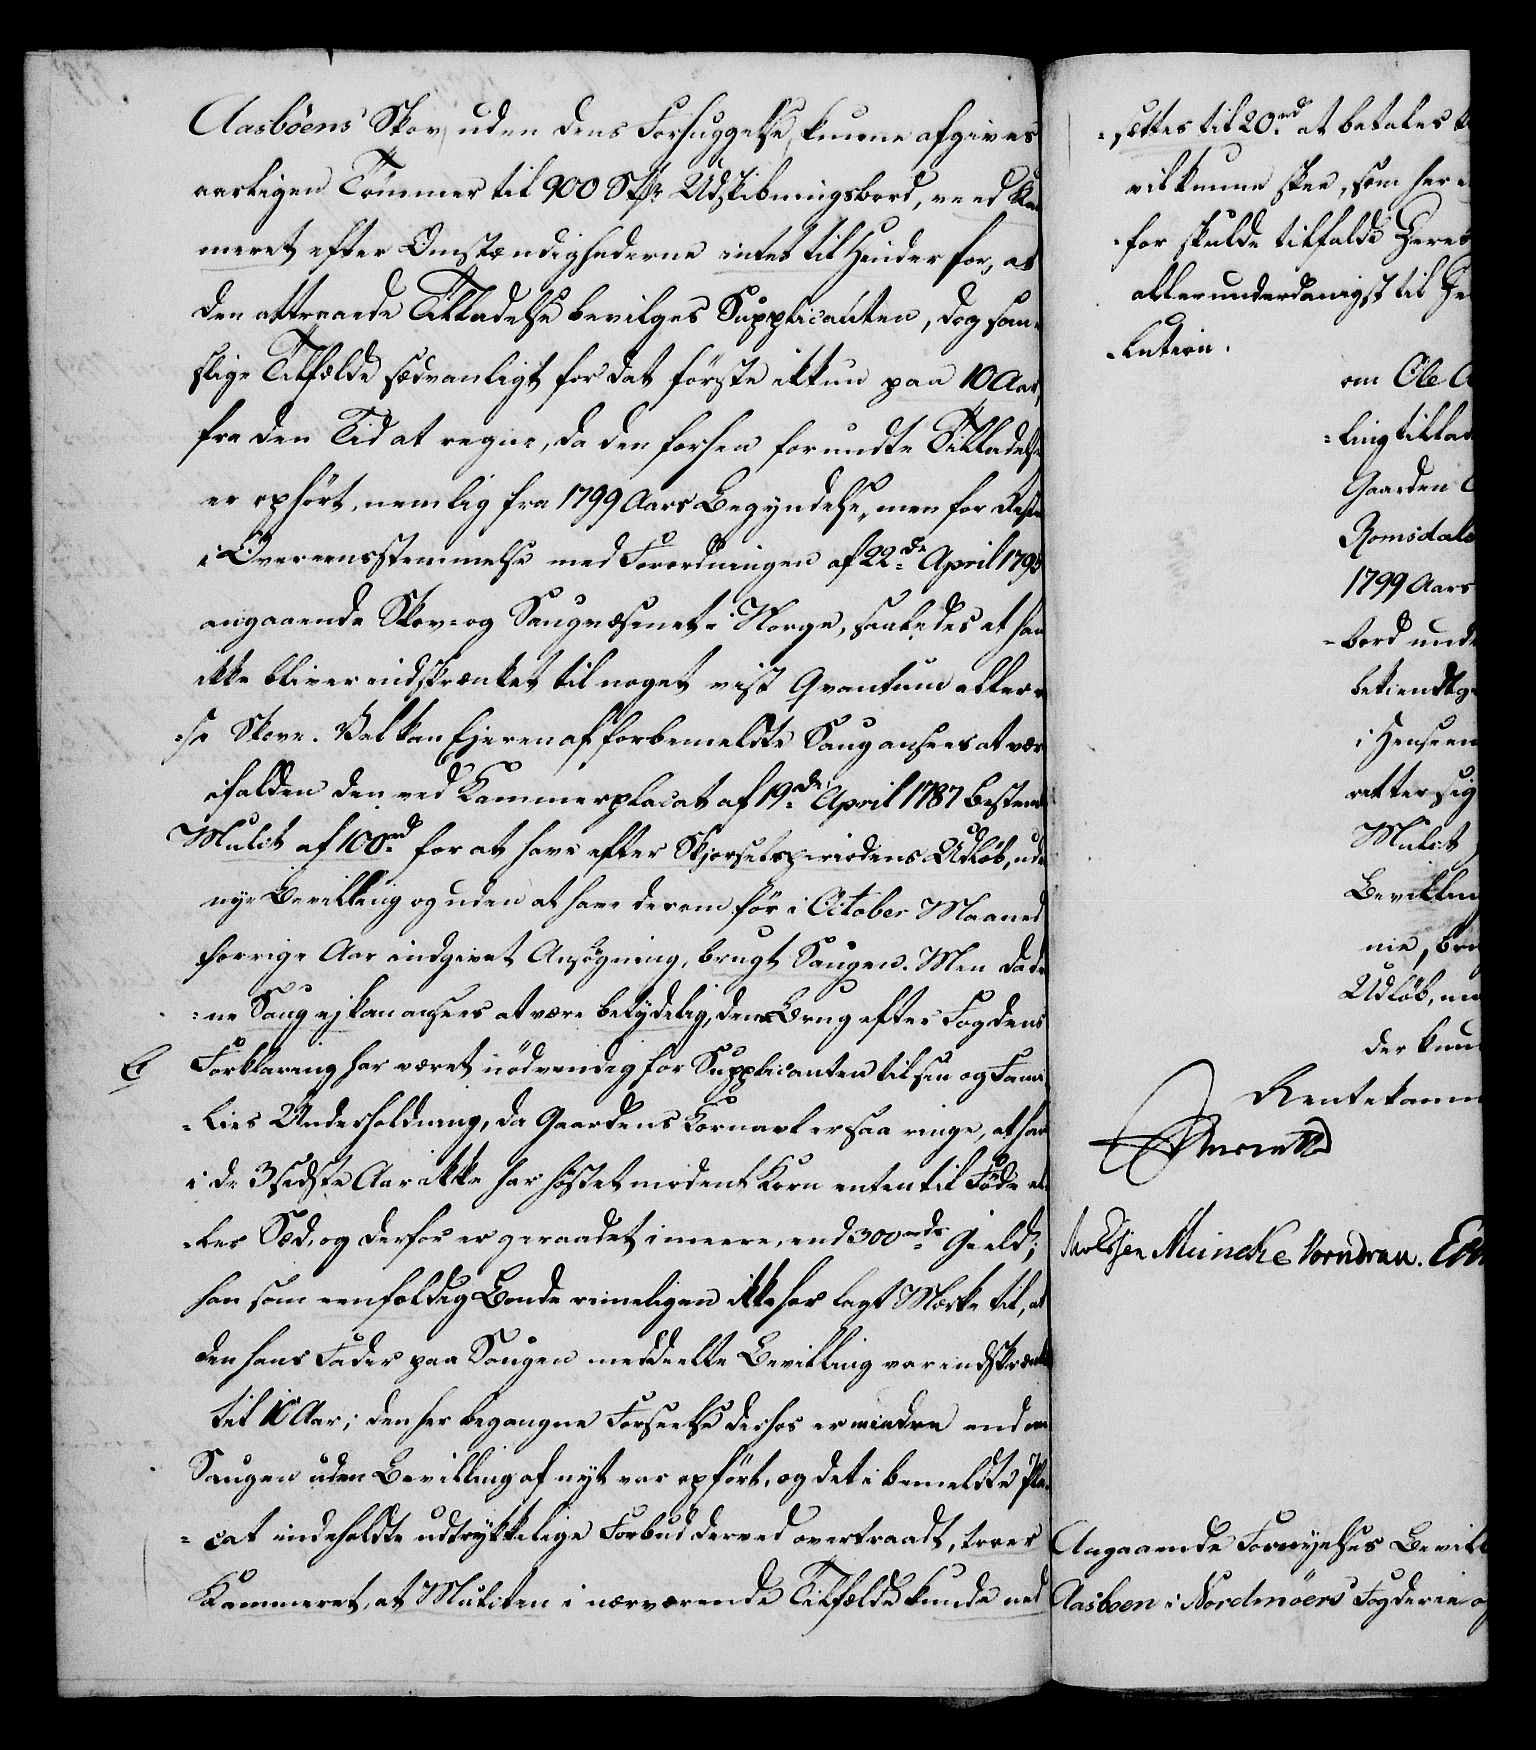 Aasböens Skov, uden dens Forhuggelse, kunne afgives
aarligen Tömmer til 900 Stkr Udskibningsbord, veed Kam
meret efter Omstændighederne intet til Hinder for, at
den attraaede Tilladelse bevilges Supplicanten, dog som i
slige Tilfælde sædvanligt for det förste ikkun paa 10 Aar,
fra den Tid at regne, da den forhen forundte Tilladelse
er ophört, nemlig fra 1799 Aars Begyndelse, men for Resten
i Overeensstemmelse med Forordningen af 22de April 1795
angaaende Skov- og Saugvæsenet i Norge, saaledes at han
ikke bliver indskrænket til noget vist Qvantum eller vis-
-se Skove. Vel kan Ejeren af forbemeldte Saug ansees at være
ifalden den ved Kammerplacat af 19de April 1787 bestemte
Mulct af 100rd for at have efter Skjørselsperiodens Udlöb, uden
nye Bevilling og uden at have derom för i October Maaned
forrige Aar indgivet Ansögning, brugt Saugen. Men da den-
-ne Saug ej kan ansees at være betydelig, dens Brug efter Fogdens
Forklaring har været nödvendig for Supplicanten til sin og Fami-
-lies Underholdning, da Gaardens Kornavl er saa ringe, at han
i de 3 sidste Aar ikke har höstet modent Korn enten til Föde el-
-ler Sæd, og derfor er geraadet i meere end 300rds Gield;
han som eenfoldig Bonde rimeligen ikke har lagt Mærke til, at
den hans Fader paa Saugen meddeelte Bevilling var indskrænket
til 10 Aar; den her begangne Forseelse deshos er mindre end om
Saugen uden Bevilling af nyt var opfört, og det i bemeldte Pla-
-cat indeholdte udtrykkelige Forbud derved overtraadt, troer
Kammeret, at Mulcten i nærværende Tilfælde kunde ned
-sættes til 20rd at betales
vil kunne skee, som her
for skulde tilfalde Deres
allerunderdanigst til
-lution.
om Ole
-ling tillad
Gaarden
Romsdals
1799 Aars
-bord und
bekiendtg
i Henseen
retter sig
Mulct
Bevilling
nie, bru
Udlöb, m
der kun
Rentekamm
Müncke Vorndran.
Angaaende Fornyelses Bevill
Aasböen i Nordmöers Fogderie og